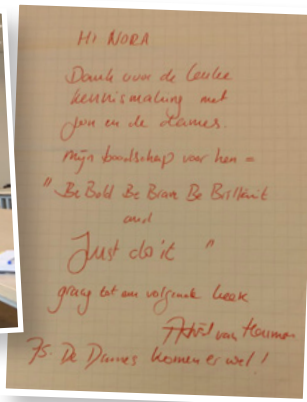 Hi NORA
Dank voor de leuke
kennismaking met
jou en de dames.
Mijn boodschap voor hen =
"Be Bold Be Brave Be Brilliant
and
Just do it "
graag tot een volgende keer
van
Ps. De Dames komen er wel!